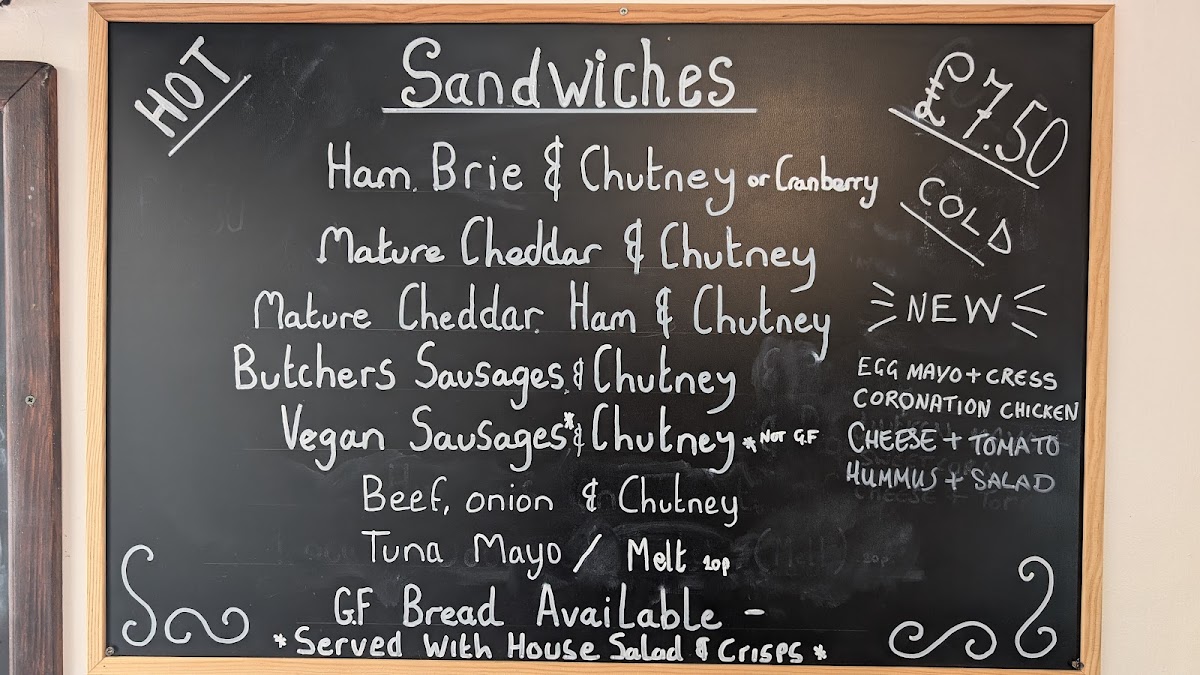 HOT
Sandwiches
£7.50
Ham, Brie & Chutney or Cranberry
Mature Cheddar & Chutney
Mature Cheddar, Ham & Chutney
Butchers Sausages & Chutney
Vegan Sausages* & Chutney *NOT G.F
Beef, onion & Chutney
Tuna Mayo / Melt 20p
G.F Bread Available -
*Served With House Salad & Crisps*
COLD
NEW
EGG MAYO + CRESS
CORONATION CHICKEN
CHEESE + TOMATO
HUMMUS + SALAD